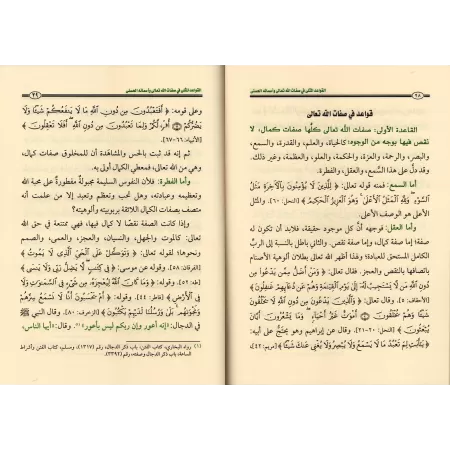 القواعد المثلى في صفات الله تعالى وأسمائه الحسنى
٢٨
قواعد في صفات الله تعالى
القاعدة الأولى: صفات الله تعالى كلُّها صفات كمال، لا
نقص فيها بوجه من الوجوه؛ كالحياة، والعلم، والقدرة، والسمع،
والبصر، والرحمة، والعزة، والحكمة، والعلو، والعظمة، وغير ذلك،
وقد دلَّ على هذا السَّمع، والعقل، والفطرة.
أما السمع: فمنه قوله تعالى: ﴿ لِلَّذِينَ لَا يُؤْمِنُونَ بِالْآخِرَةِ مَثَلُ
السَّوْءِ وَلِلَّهِ الْمَثَلُ الْأَعْلَىٰ وَهُوَ الْعَزِيزُ الْحَكِيمُ ﴾ [النحل: ٦٠]. والمثل
الأعلى هو الوصف الأعلى.
وأما العقل: فوجهه أنَّ كل موجود حقيقة، فلابد أن تكون له
صفة؛ إما صفة كمال، وإما صفة نقص. والثاني باطل بالنسبة إلى الربِّ
الكامل المستحق للعبادة؛ ولهذا أظهر الله تعالى بطلان ألوهية الأصنام
باتصافها بالنقص والعجز. فقال تعالى: ﴿ وَمَنْ أَضَلُّ مِمَّن يَدْعُوا مِن
دُونِ اللَّهِ مَن لَّا يَسْتَجِيبُ لَهُ إِلَىٰ يَوْمِ الْقِيَامَةِ وَهُمْ عَن دُعَائِهِمْ غَافِلُونَ ﴾
[الأحقاف: ٥]. وقال تعالى: ﴿ وَالَّذِينَ يَدْعُونَ مِن دُونِ اللَّهِ لَا يَخْلُقُونَ
شَيْئًا وَهُمْ يُخْلَقُونَ ۝ أَمْوَاتٌ غَيْرُ أَحْيَاءٍ وَمَا يَشْعُرُونَ أَيَّانَ
يُبْعَثُونَ ﴾ [النحل: ٢٠-٢١]. وقال عن إبراهيم وهو يحتجُّ على أبيه:
﴿ يَا أَبَتِ لِمَ تَعْبُدُ مَا لَا يَسْمَعُ وَلَا يُبْصِرُ وَلَا يُغْنِي عَنكَ شَيْئًا ﴾ [مريم: ٤٢].
القواعد المثلى في صفات الله تعالى وأسمائه الحسنى
٢٩
وعلى قومه: ﴿ أَفَتَعْبُدُونَ مِن دُونِ اللَّهِ مَا لَا يَنفَعُكُمْ شَيْئًا وَلَا
يَضُرُّكُمْ ۝ أُفٍّ لَّكُمْ وَلِمَا تَعْبُدُونَ مِن دُونِ اللَّهِ أَفَلَا تَعْقِلُونَ ﴾
[الأنبياء: ٦٦-٦٧].
ثم إنه قد ثبت بالحس والمشاهدة أن للمخلوق صفات كمال،
وهي من الله تعالى، فمعطي الكمال أولى به.
وأما الفطرة: فلأن النفوس السليمة مجبولةٌ مفطورةٌ على محبة الله
وتعظيمه وعبادته، وهل تحب وتعظم وتعبد إلا من علمت أنه
متصف بصفات الكمال اللائقة بربوبيته وألوهيته؟
وإذا كانت الصفة نقصًا لا كمال فيها، فهي ممتنعة في حق الله
تعالى: كالموت والجهل، والنسيان، والعجز، والعمى، والصمم
ونحوها؛ لقوله تعالى: ﴿ وَتَوَكَّلْ عَلَى الْحَيِّ الَّذِي لَا يَمُوتُ ﴾
[الفرقان: ٥٨]. وقوله عن موسى: ﴿ فِي كِتَابٍ لَّا يَضِلُّ رَبِّي وَلَا يَنسَى ﴾
[طه: ٥٢]. وقوله: ﴿ وَمَا كَانَ اللَّهُ لِيُعْجِزَهُ مِن شَيْءٍ فِي السَّمَاوَاتِ وَلَا
فِي الْأَرْضِ ﴾ [فاطر: ٤٤]. وقوله: ﴿ أَمْ يَحْسَبُونَ أَنَّا لَا نَسْمَعُ سِرَّهُمْ
وَنَجْوَاهُم بَلَىٰ وَرُسُلُنَا لَدَيْهِمْ يَكْتُبُونَ ﴾ [الزخرف: ٨٠]. وقال النبي ﷺ
في الدجال: «إنه أعور وإن ربكم ليس بأعور»(١). وقال: «أيها الناس،
(١) رواه البخاري، كتاب الفتن: باب ذكر الدجال، رقم: (٧١٣١)، ومسلم، كتاب الفتن وأشراط
الساعة: باب ذكر الدجال وصفته، رقم: